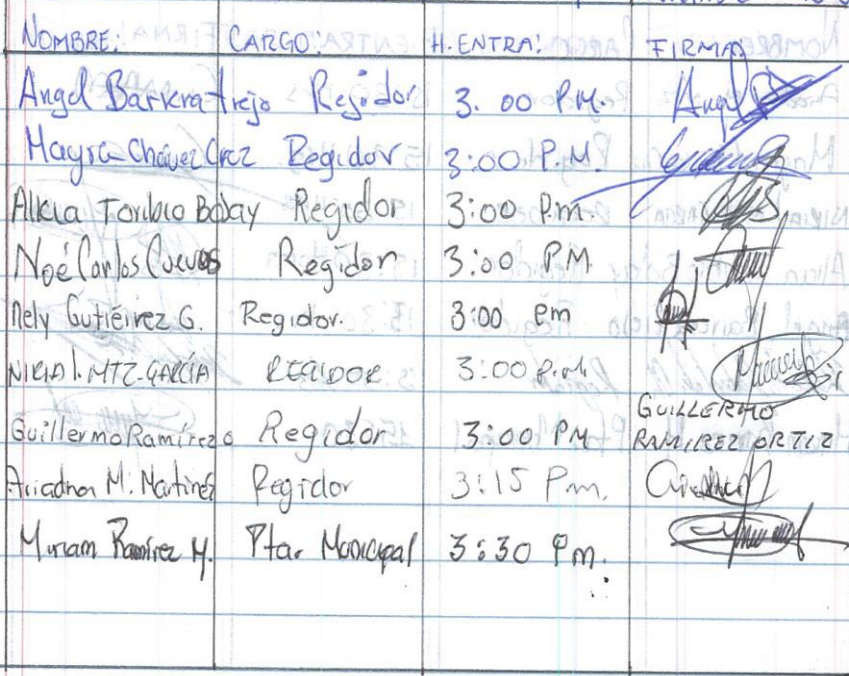 NOMBRE: CARGO: H. ENTRA: FIRMA
Angel Barrera trejo Regidor 3:00 P.M. Angel
Mayra Chávez Cruz Regidor 3:00 P.M.
Alicia Toribio Regidor 3:00 P.m.
Noé Carlos Cuevas Regidor 3:00 P.M
Nely Gutiéirez G. Regidor. 3:00 pm
NIRIA I. MTZ. GARCÍA REGIDOR 3:00 p.m.
Guillermo Ramírez O Regidor 3:00 PM GUILLERMO
RAMIREZ ORTIZ
Ariadna M. Martinez Regidor 3:15 Pm.
Miriam Ramírez M. Ptar Municipal 3:30 Pm.